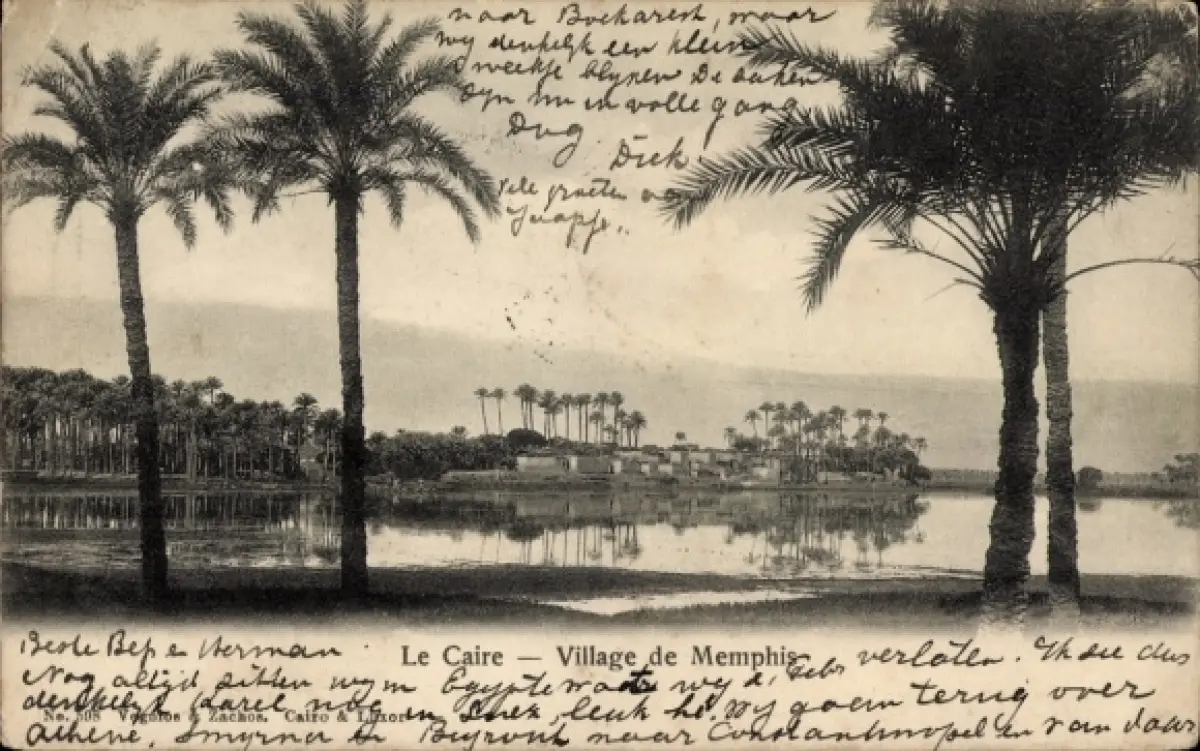 naar Bockarest, maar
wy denkelyk een klein
weekje blyven De zaken
zyn nu in volle gang
Dag
Diek
Vele groeten
Jaapje
Le Caire — Village de Memphis
Beste Bep en Herman
Nog altijd zitten wy in Egypte wy 2 Febr verlaten. Ik zie dus
denkelyk Karel nog in Suez, leuk hè. Wy gaan terug over
No. 508 Vegnios & Zachos. Cairo & Luxor
Athene, Smyrna en Beyrout naar Constantinopel en van daar